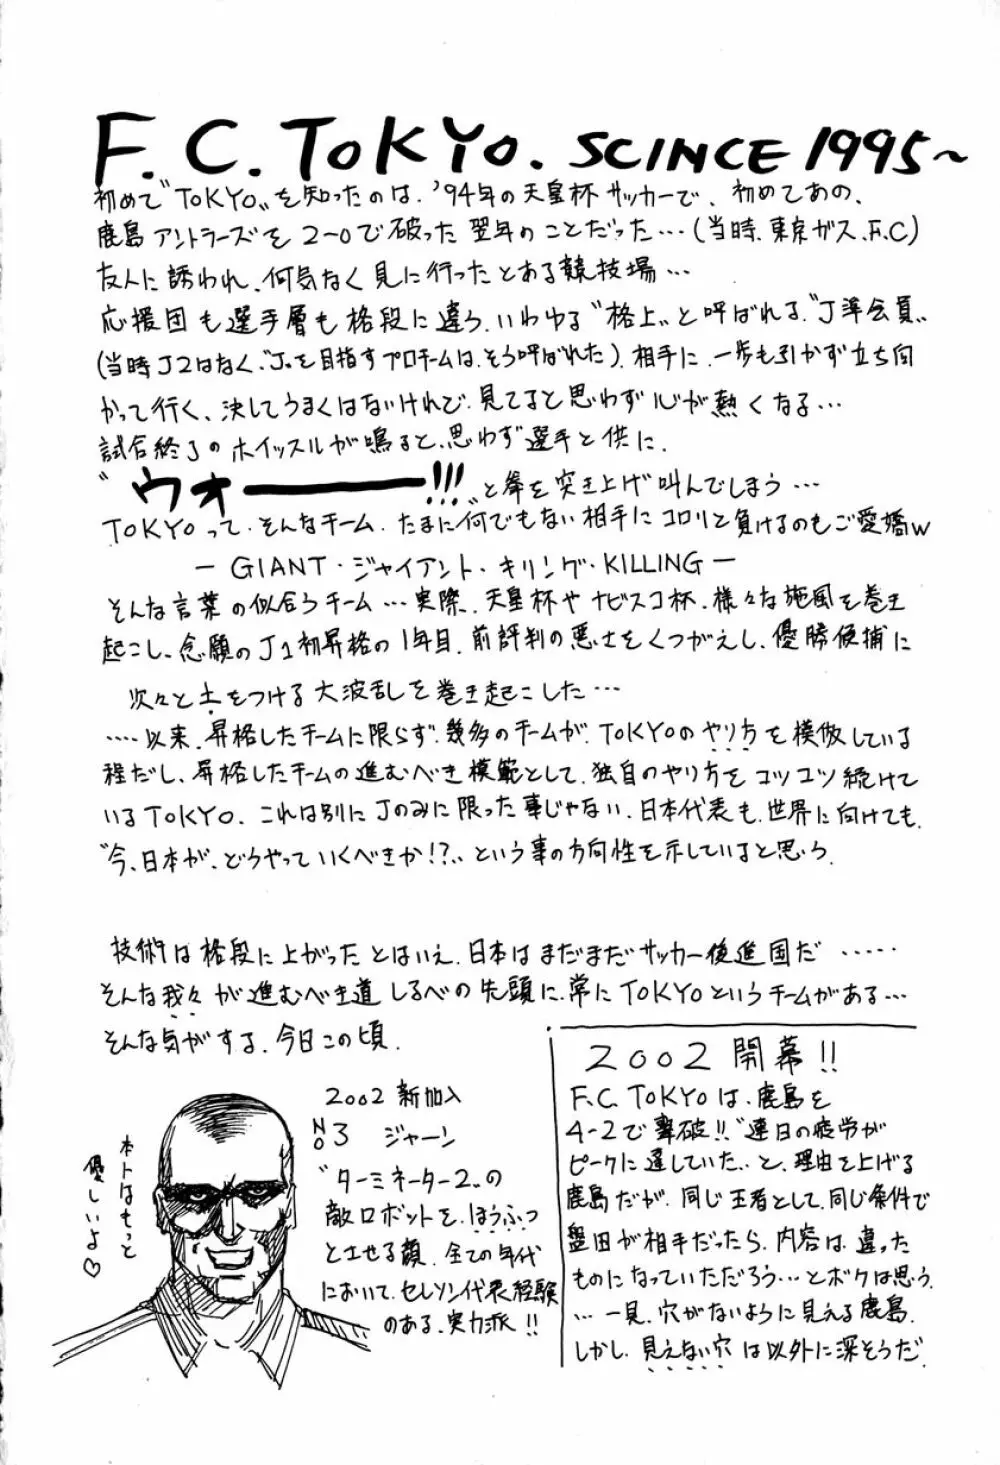 F.C.TOKYO. SCINCE 1995~
初めて"TOKYO"を知ったのは、'94年の天皇杯サッカーで、初めてあの、
鹿島アントラーズを2-0で破った翌年のことだった…(当時、東京ガス、F.C)
友人に誘われ、何気なく見に行ったとある競技場…
応援団も選手層も格段に違う、いわゆる"格上"と呼ばれる"J準会員"
(当時J2はなく、"J"を目指すプロチームは、そう呼ばれた)、相手に、一歩も引かず立ち向
かって行く、決してうまくはないけれど、見てると思わず心が熱くなる…
試合終了のホイッスルが鳴ると、思わず選手と供に、
"ウォーーー!!!"と拳を突き上げ叫んでしまう…
TOKYOって、そんなチーム、たまに何でもない相手にコロリと負けるのもご愛嬌w
— GIANT・ジャイアント・キリング・KILLING —
そんな言葉の似合うチーム…実際、天皇杯やナビスコ杯、様々な旋風を巻き
起こし、念願のJ1初昇格の1年目、前評判の悪さをくつがえし、優勝候補に
次々と土をつける大波乱を巻き起こした…
‥‥以来、昇格したチームに限らず、幾多のチームが、TOKYOのやり方を模倣している
程だし、昇格したチームの進むべき模範として、独自のやり方をコツコツ続けて
いるTOKYO. これは別にJのみに限った事じゃない、日本代表も、世界に向けても、
"今、日本が、どうやっていくべきか!?"という事の方向性を示していると思う、
技術は格段に上がったとはいえ、日本はまだまだサッカー後進国だ‥‥‥
そんな我々が進むべき道しるべの先頭に、常にTOKYOというチームがある…
そんな気がする、今日この頃、
ホントはもっと
優しいよ♡
2002 新加入
NO3 ジャーン
"ターミネーター2"の
敵ロボットを、ほうふつ
とさせる顔、全ての年代
において、セレソン代表経験
のある、実力派!!
2002 開幕!!
F.C.TOKYOは、鹿島を
4-2で撃破!!"連日の疲労が
ピークに達していた"と、理由を上げる
鹿島だが、同じ王者として、同じ条件で
磐田が相手だったら、内容は、違った
ものになっていただろう…とボクは思う、
…一見、穴がないように見える鹿島、
しかし、見えない穴は以外に深そうだ、